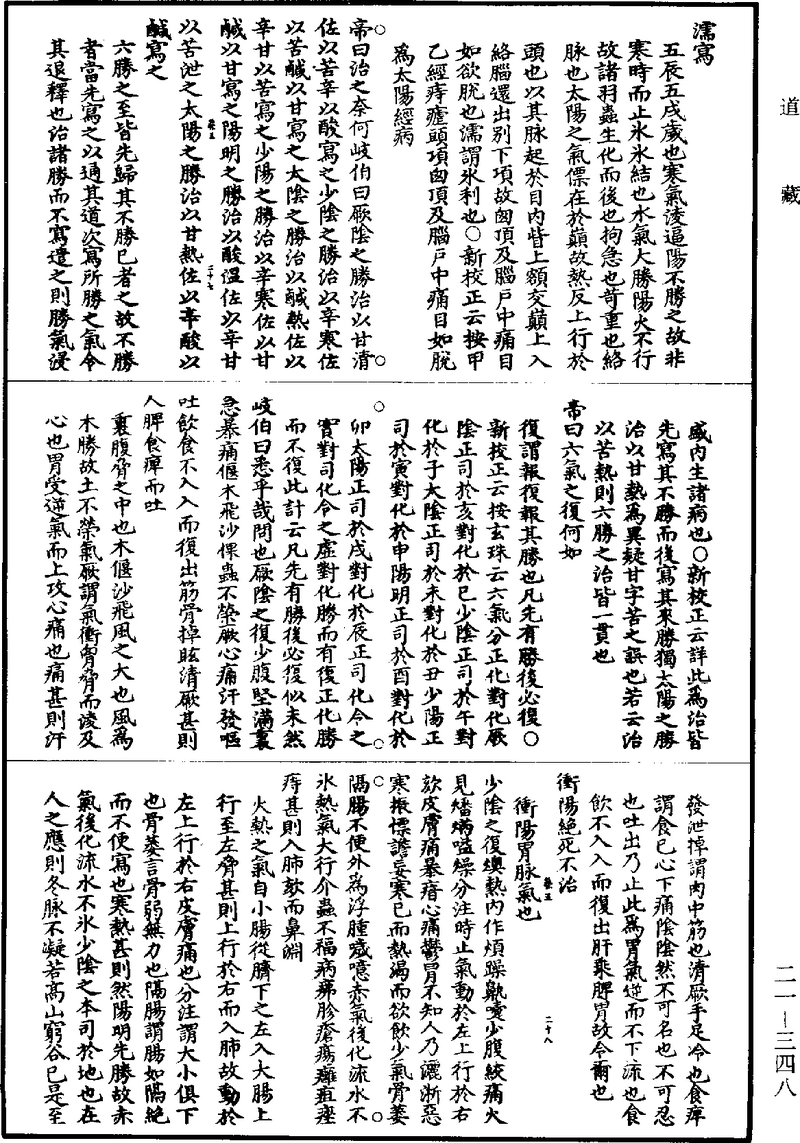 道藏
濡寫
五辰五戌歲也寒氣淩逼陽不勝之故非
寒時而止氷氷結也水氣大勝陽火不行
故諸羽蟲生化而後也拘急也苛重也絡
脉也太陽之氣慓在於巔故熱反上行於
頭也以其脉起於目內眥上額交巔上入
絡腦還出别下項故囟頂及腦戶中痛目
如欲脫也濡謂氷利也○新校正云按甲
乙經痔瘧頭項囟頂及腦戶中痛目如脫
爲太陽經病
帝曰治之奈何岐伯曰厥陰之勝治以甘清
佐以苦辛以酸寫之少陰之勝治以辛寒佐
以苦鹹以甘寫之太陰之勝治以鹹熱佐以
辛甘以苦寫之少陽之勝治以辛寒佐以甘
鹹以甘寫之陽明之勝治以酸温佐以辛甘
卷五 二十七
以苦泄之太陽之勝治以甘熱佐以辛酸以
鹹寫之
六勝之至皆先歸其不勝已者之故不勝
者當先寫之以通其道次寫所勝之氣令
其退釋也治諸勝而不寫遣之則勝氣浸
盛內生諸病也○新校正云詳此爲治皆
先寫其不勝而後寫其來勝獨太陽之勝
治以甘熱爲異疑甘字苦之誤也若云治
以苦熱則六勝之治皆一貫也
帝曰六氣之復何如
復謂報復報其勝也凡先有勝後必復○
新校正云按玄珠云六氣分正化對化厥
陰正司於亥對化於巳少陰正司於午對
化於子太陰正司於未對化於丑少陽正
司於寅對化於申陽明正司於酉對化於
卯太陽正司於戌對化於辰正司化令之
實對司化令之虚對化勝而有復正化勝
而不復此計云凡先有勝後必復似未然
岐伯曰悉乎哉問也厥陰之復少腹堅滿裏
急暴痛偃木飛沙倮蟲不榮厥心痛汗發嘔
吐飲食不入入而復出筋骨掉眩清厥甚則
入脾食痺而吐
裏腹脅之中也木偃沙飛風之大也風爲
木勝故土不榮氣厥謂氣衝胷脅而淩及
心也胃受逆氣而上攻心痛也痛甚則汗
發泄掉謂肉中筋也清厥手足冷也食痺
謂食已心下痛陰陰然不可名也不可忍
也吐出乃止此爲胃氣逆而不下流也食
飲不入入而復出肝乘脾胃故令爾也
衝陽絕死不治
衝陽胃脉氣也
卷五 二十八
少陰之復燠熱內作煩躁鼽嚏少腹絞痛火
見燔焫嗌燥分注時止氣動於左上行於右
欬皮膚痛暴瘖心痛鬱冒不知人乃灑淅惡
寒振慄譫妄寒已而熱渴而欲飲少氣骨萎
隔腸不便外爲浮腫噦噫赤氣後化流水不
氷熱氣大行介蟲不福病疿胗瘡瘍癰疽痤
痔甚則入肺欬而鼻淵
火熱之氣自小腸從臍下之左入大腸上
行至左脅甚則上行於右而入肺故動於
左上行於右皮膚痛也分注謂大小俱下
也骨萎言骨弱無力也隔腸謂腸如隔絕
而不便寫也寒熱甚則然陽明先勝故赤
氣後化流水不氷少陰之本司於地也在
人之應則冬脉不凝若高山窮谷已是至
二一—三四八